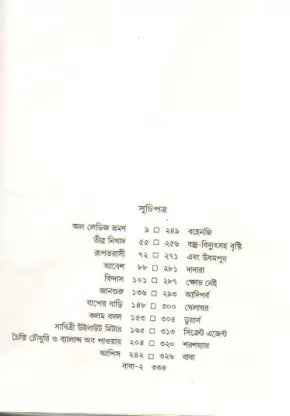 সূচিপত্র
অল লেডিজ ভ্রমণ ৯ □ ২৪৯ বহেনজি
তাঁর নিষাদ ৫৫ □ ২৫৬ বজ্র-বিদ্যুৎসহ বৃষ্টি
রূপতরাসী ৭২ □ ২৭১ এবং উধমপুর
আবেশ ৮৮ □ ২৮১ দাদারা
বিন্দাস ১০১ □ ২৮৭ ক্ষোভ নেই
জানগুরু ১৩৬ □ ২৯৩ আদিপর্ব
বাপের বাড়ি ১৪৮ □ ৩০০ খেলাঘর
কলম বদল ১৫৩ □ ৩০৪ ডুয়ার্স
সাবিত্রী উইদাউট মিটার ১৬৫ □ ৩১৩ সিক্রেট এজেন্ট
চৈতি চৌধুরি ও ব্যালান্স অব পাওয়ার ২০৪ □ ৩২০ শরশয্যায়
আপিস ২৪২ □ ৩২৬ বাবা
বাবা-২ ৩৩৪